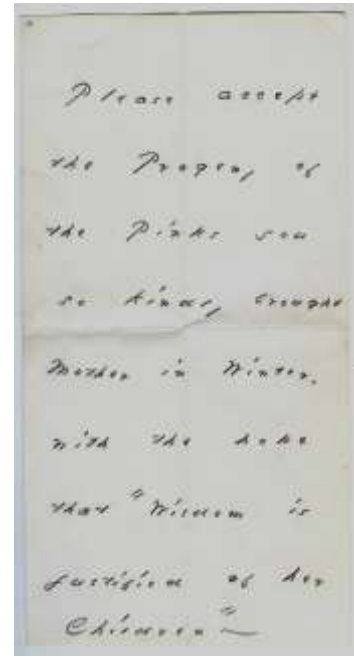 Please accept
the Progeny of
the Pinks you
so kindly brought
Mother in Winter,
with the hope
that "Wisdom is
justified of her
Children"—